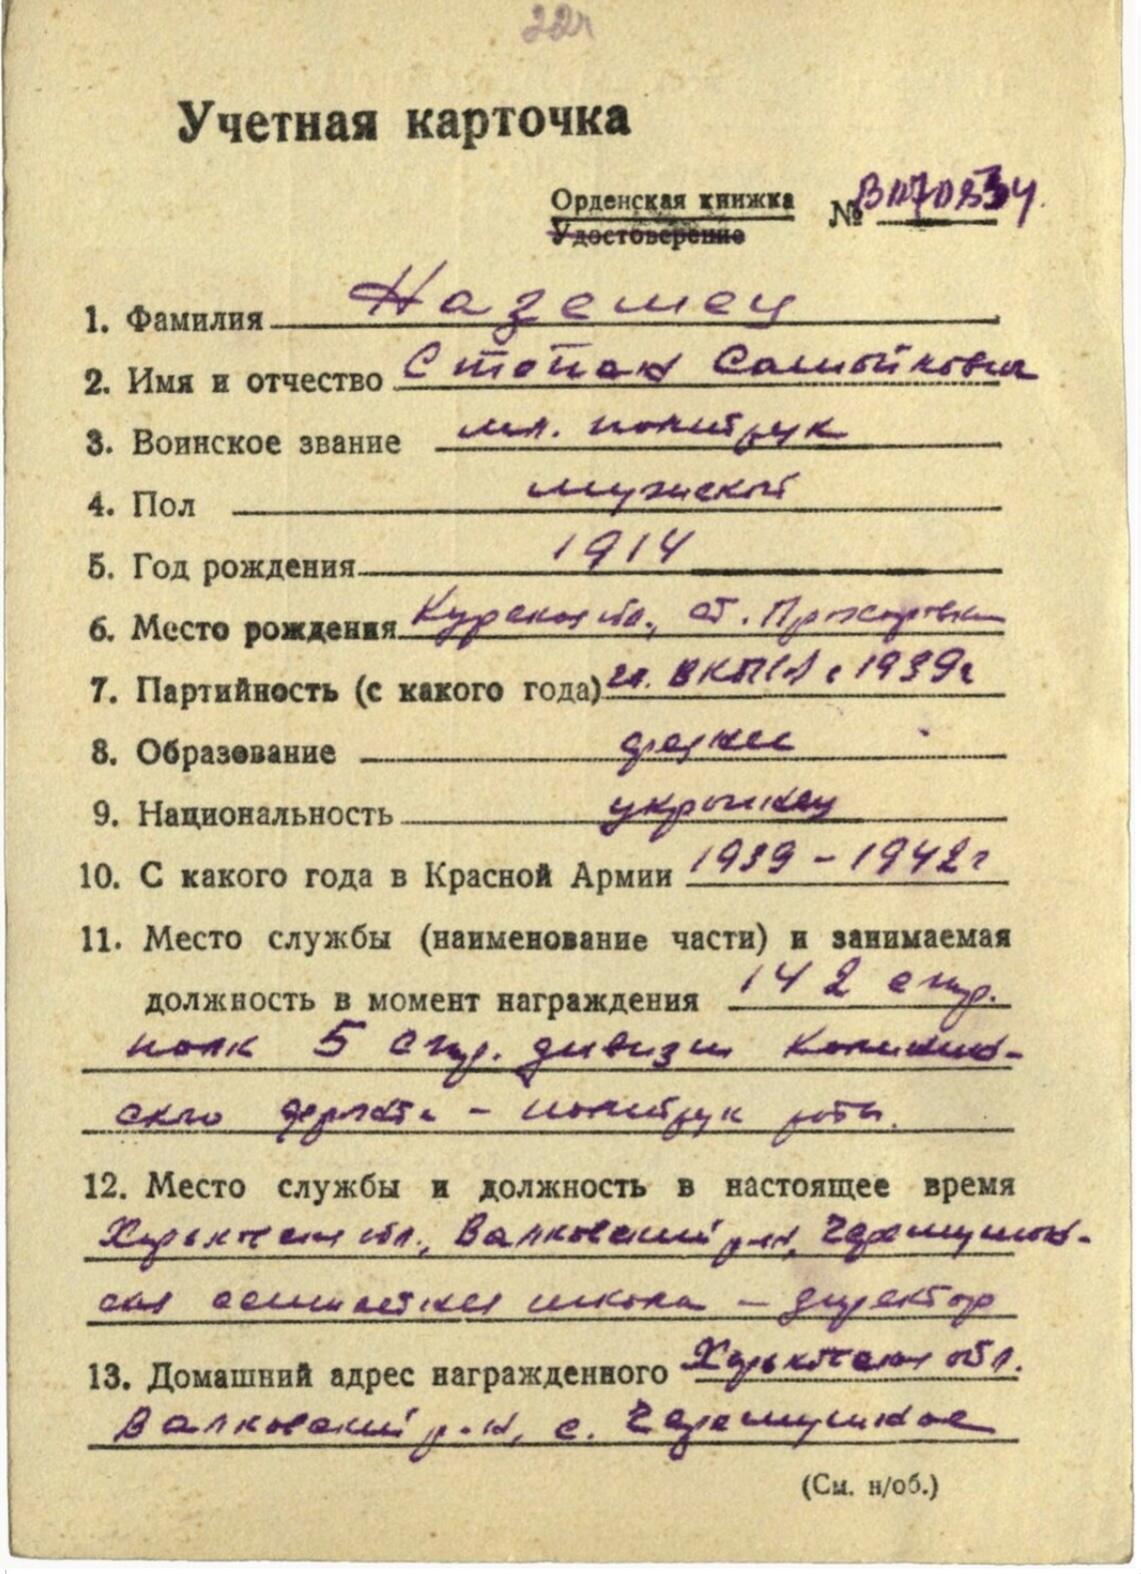 22ч
Учетная карточка
Орденская книжка
Удостоверение
№
1. Фамилия Наземец
2. Имя и отчество Степан Самойлович
3. Воинское звание мл. политрук
4. Пол мужской
5. Год рождения 1914
6. Место рождения Курская обл., ст. Прохоровка
7. Партийность (с какого года) чл. ВКП(б) с 1939г
8. Образование среднее
9. Национальность украинец
10. С какого года в Красной Армии 1939 – 1942г
11. Место службы (наименование части) и занимаемая
должность в момент награждения 142 стр.
полк 5 стр. дивизии Калинин-
ского фронта – политрук роты.
12. Место службы и должность в настоящее время
Харьковская обл., Валковский р-н, Черемушан-
ская семилетняя школа – директор
13. Домашний адрес награжденного Харьковская обл.
Валковский р-н, с. Черемушное
(См. н/об.)